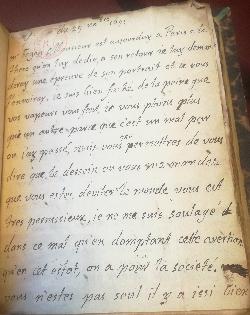 du 25
mr l'Eveque est aujourdhuy a Paris c le
jay dedié, a son retour je luy deman
deray une epreuve de son portrait et je vous
l'envoyeray, je suis bien faché de la peine que
vos vapeurs vous font je vous plains plus
qu'un autre parce que c'est un mal par
ou j'ay passé, mais vous permettrés de vous
dire que le dessein ou vous
que vous etes, deviter le monde vous est
tres pernicieux, je ne me suis soulagé
dans ce mal qu'en domptant cette aversion
qu'en cet estat, on a pour la société,
vous n'estes pas seul il y a icsi bien